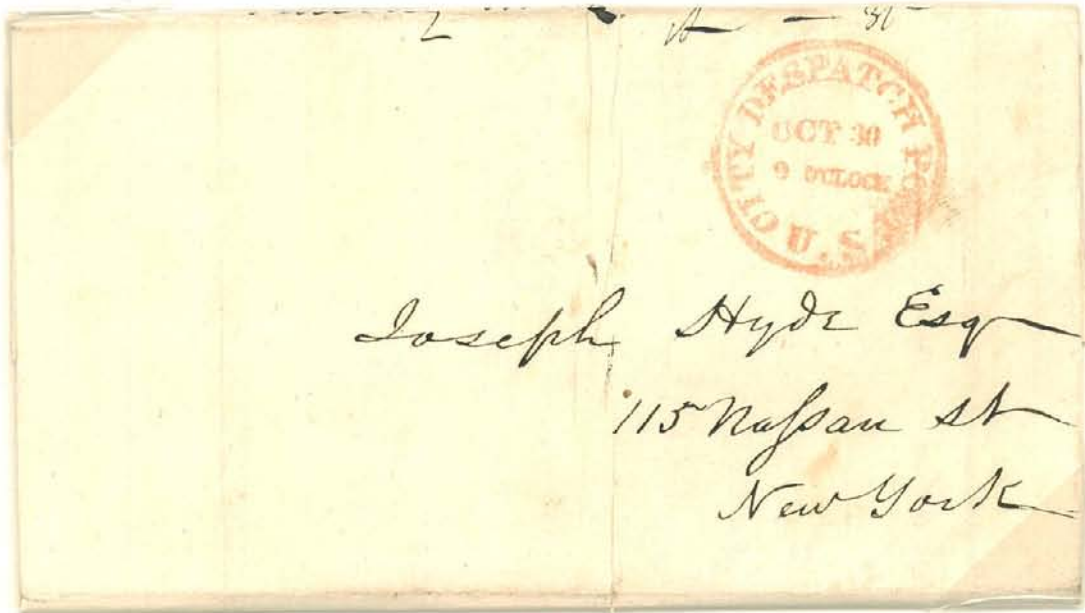 U.S. CITY DESPATCH POST
OCT 30
9 O'CLOCK
Joseph Hyde Esq
115 Nassau st
New York